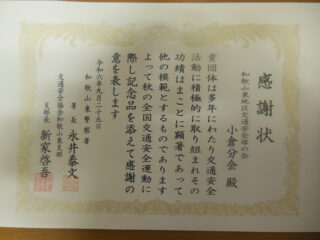 感謝状
和歌山東地区交通安全母の会
小倉分会 殿
貴団体は多年にわたり交通安全
活動に積極的に取り組まれその
功績はまことに顕著であって
他の模範とするものであります
よって秋の全国交通安全運動に
際し記念品を添えて感謝の
意を表します
令和六年九月二十五日
和歌山東警察署
署長 永井泰文
交通安全協会和歌山東支部
支部長 新家啓吾